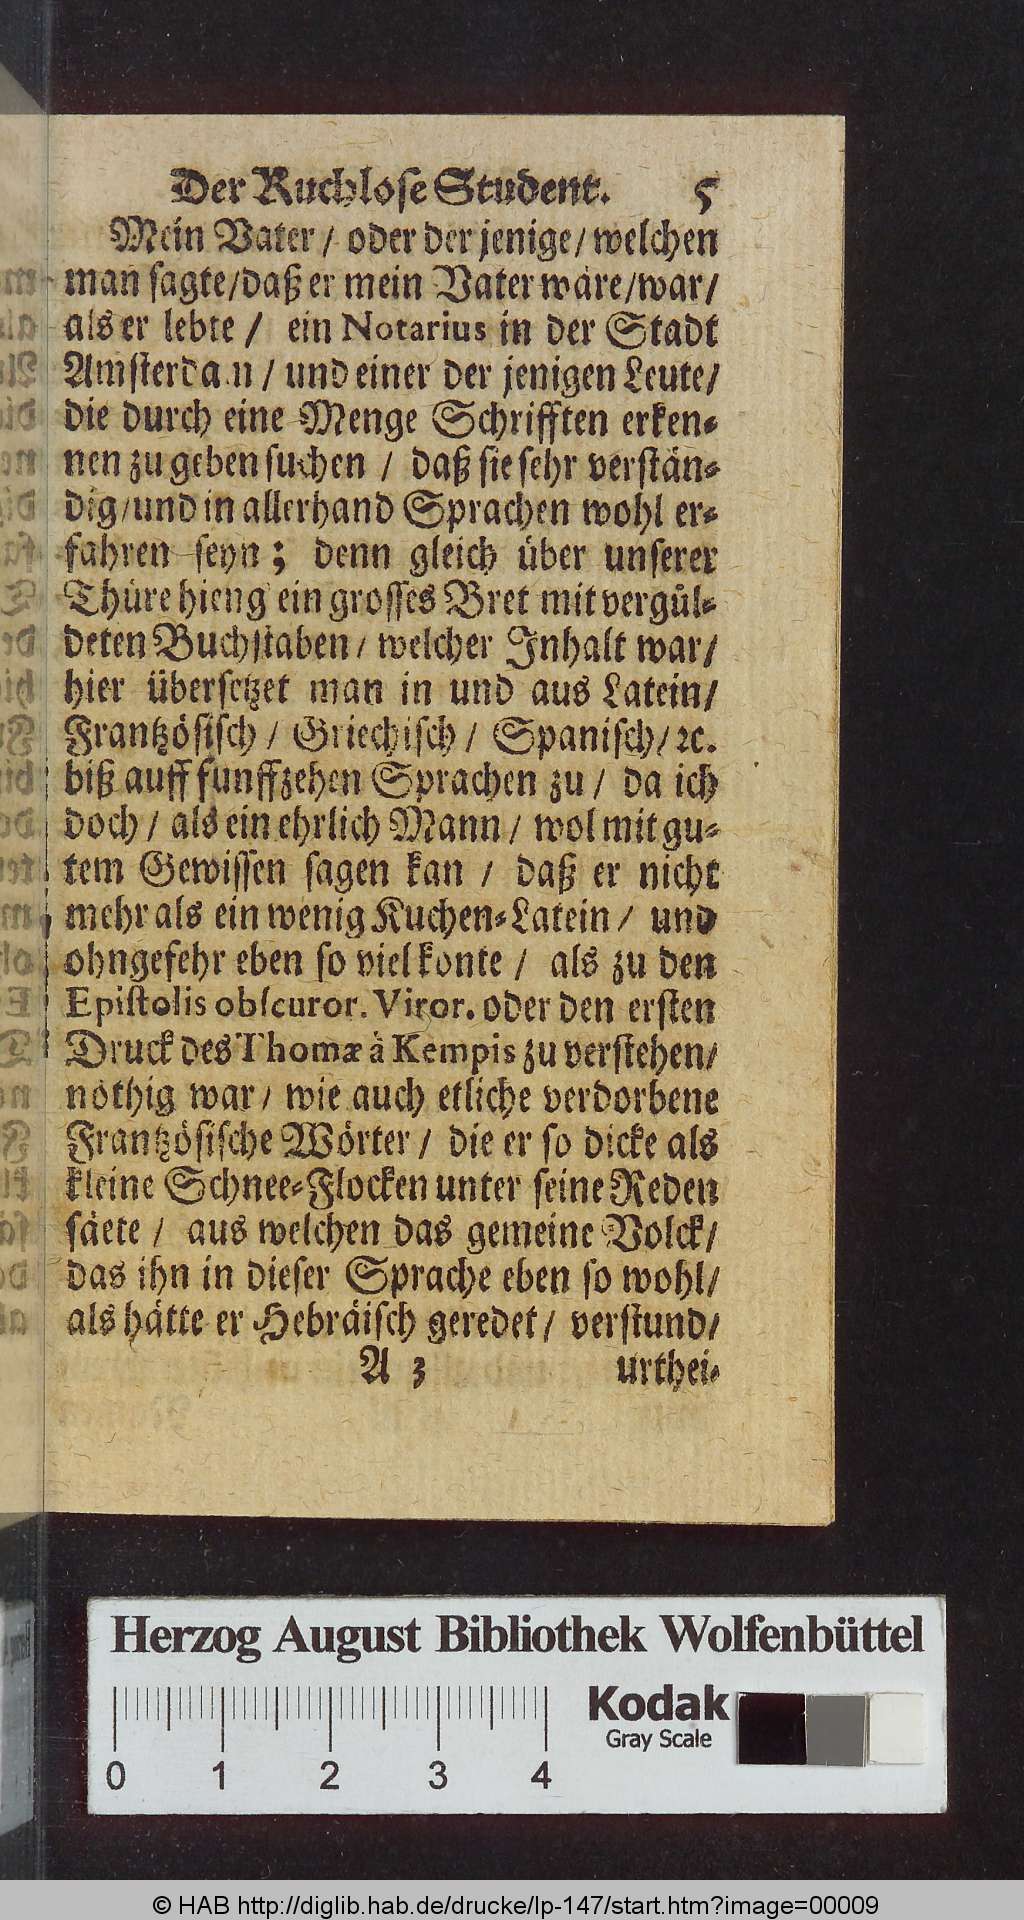 Der Ruchlose Student. 5
Mein Vater / oder der jenige / welchen
man sagte / daß er mein Vater wäre / war /
als er lebte / ein Notarius in der Stadt
Amsterdam / und einer der jenigen Leute /
die durch eine Menge Schrifften erken-
nen zu geben suchen / daß sie sehr verstän-
dig / und in allerhand Sprachen wohl er-
fahren seyn; denn gleich über unserer
Thüre hieng ein grosses Bret mit vergül-
deten Buchstaben / welcher Inhalt war /
hier übersetzet man in und aus Latein /
Frantzösisch / Griechisch / Spanisch / ꝛc.
biß auff funffzehen Sprachen zu / da ich
doch / als ein ehrlich Mann / wol mit gu-
tem Gewissen sagen kan / daß er nicht
mehr als ein wenig Kuchen-Latein / und
ohngefehr eben so viel konte / als zu den
Epistolis obscuror. Viror. oder den ersten
Druck des Thomæ à Kempis zu verstehen /
nöthig war / wie auch etliche verdorbene
Frantzösische Wörter / die er so dicke als
kleine Schnee-Flocken unter seine Reden
säete / aus welchen das gemeine Volck /
das ihn in dieser Sprache eben so wohl /
als hätte er Hebräisch geredet / verstund /
A 3 urthei-
Herzog August Bibliothek Wolfenbüttel
Kodak
Gray Scale
0 1 2 3 4
© HAB http://diglib.hab.de/drucke/lp-147/start.htm?image=00009